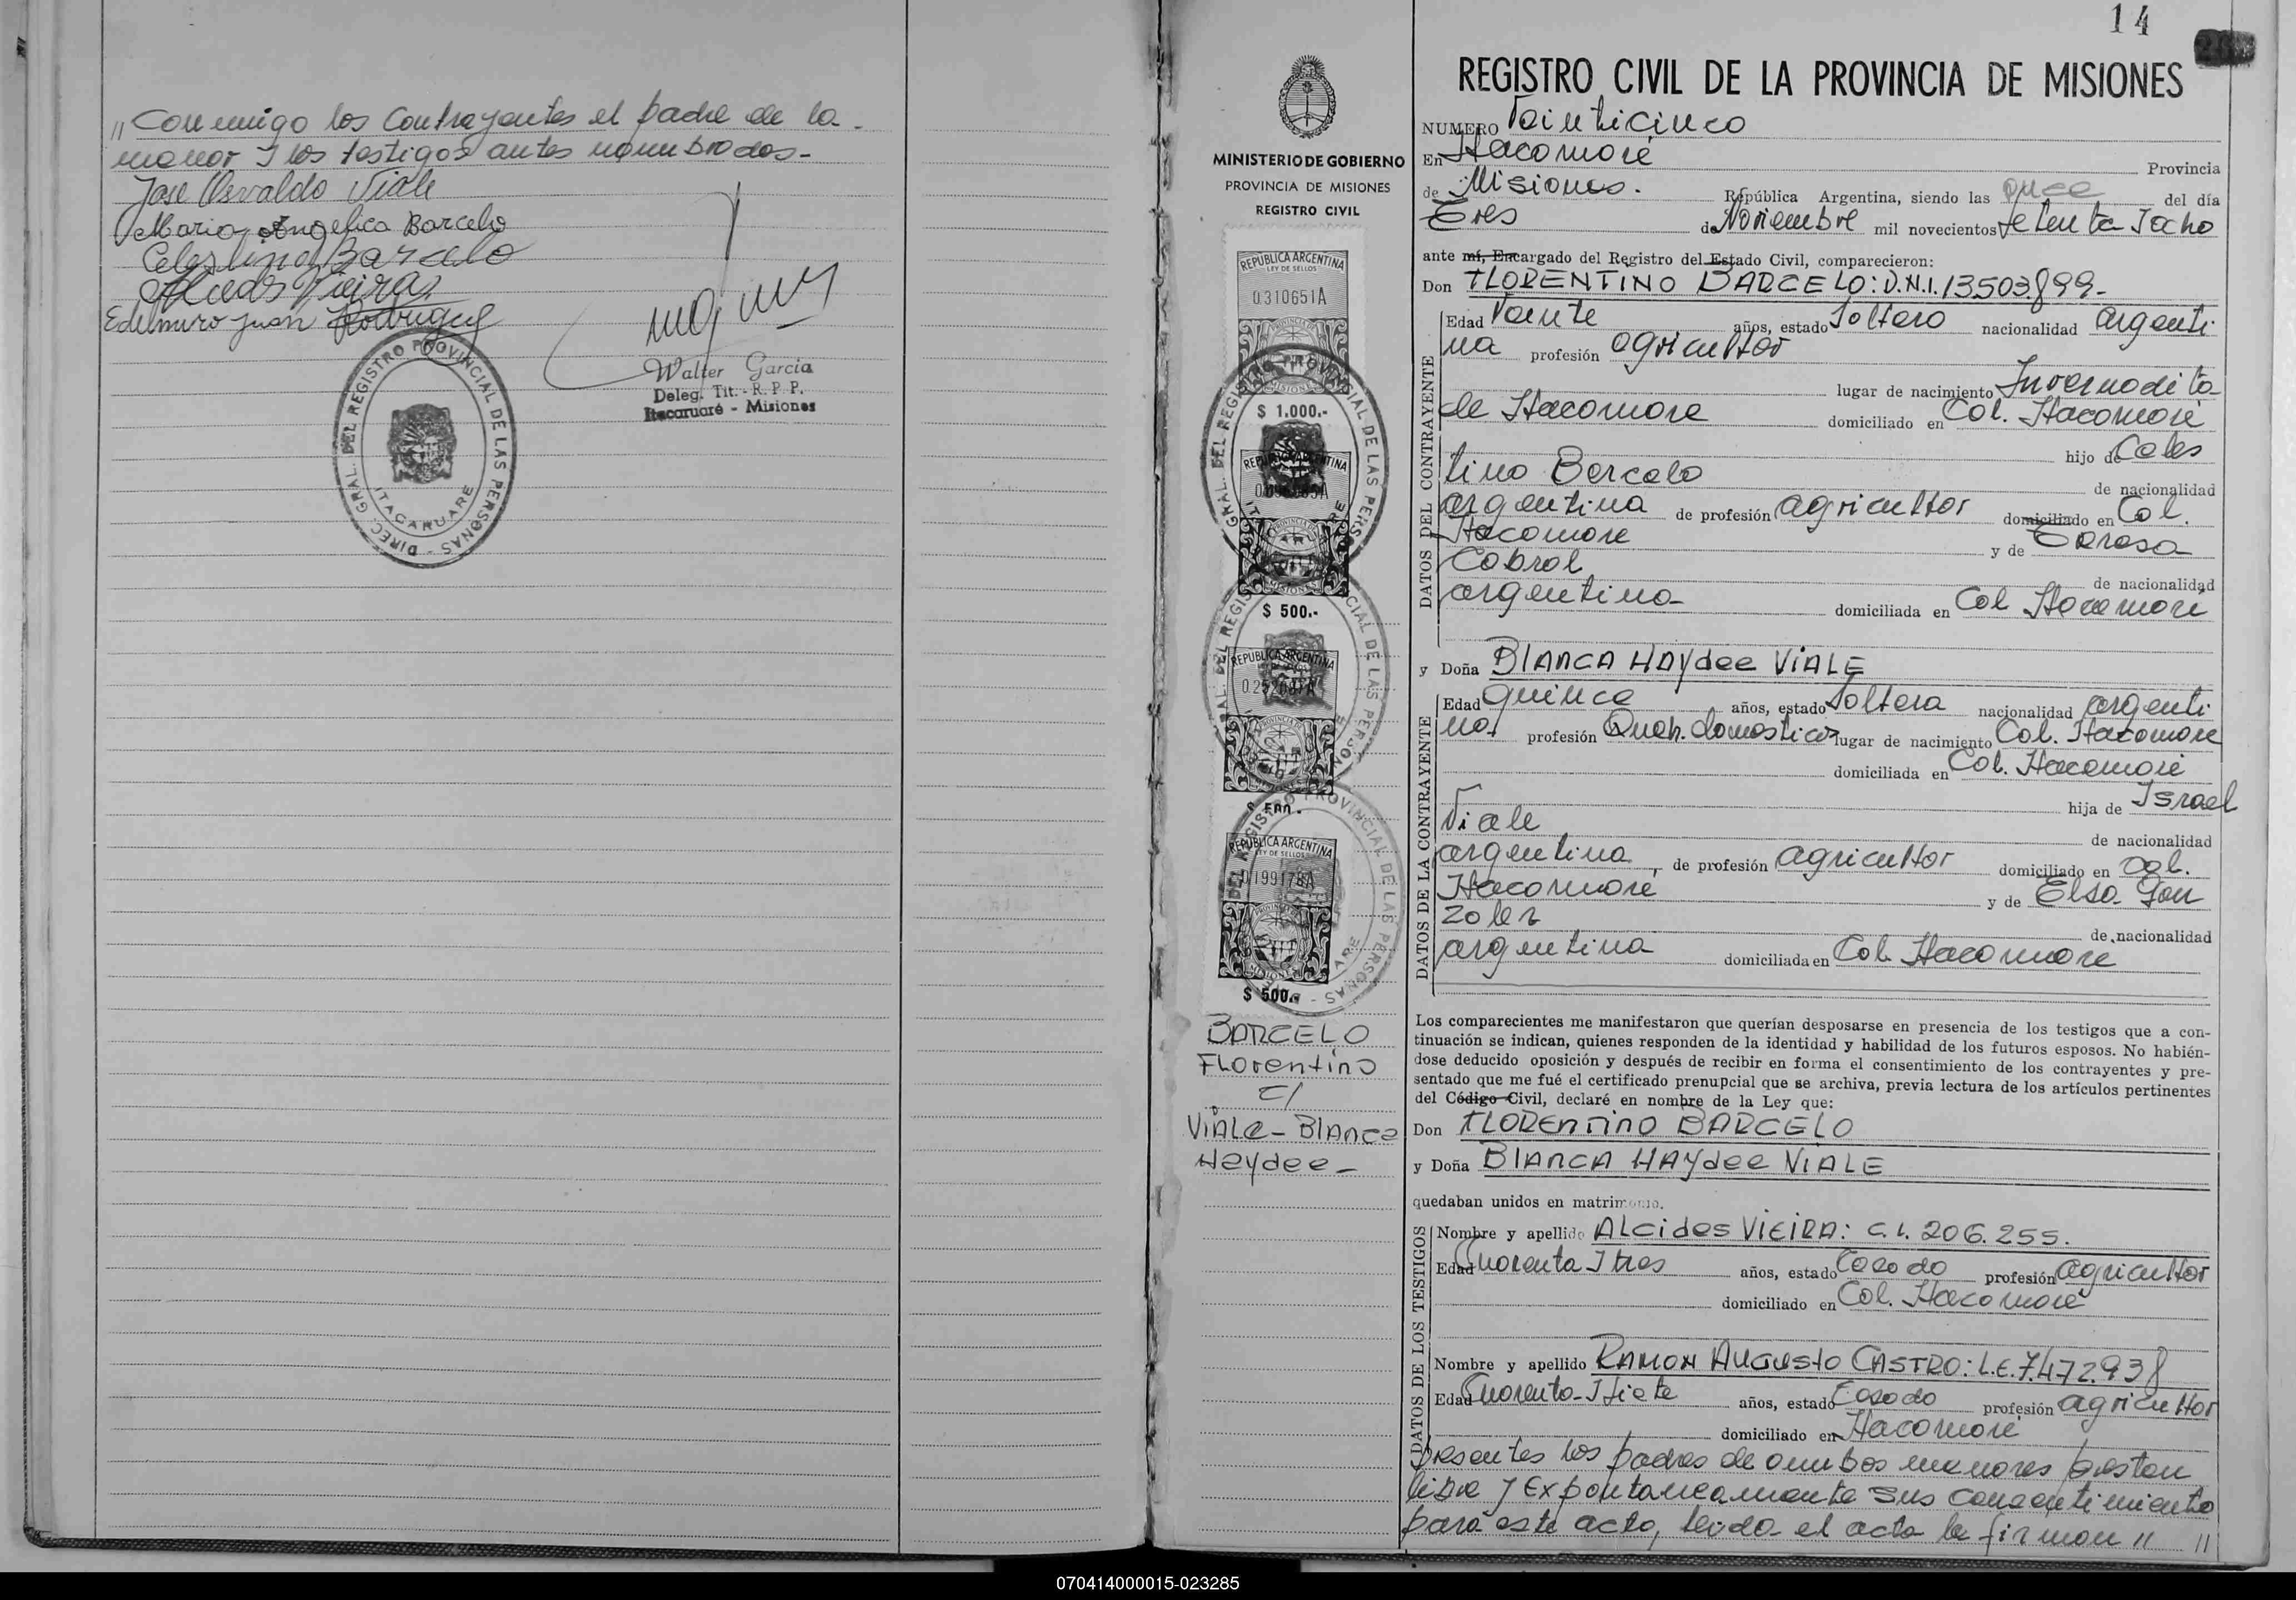 " Conmigo los Contrayentes el padre de la
menor y los testigos antes nombrados-
Jose Osvaldo Viale
Maria Angelica Barcelo
Celestino Barcelo
Alcides Vieira
Edelmiro Juan Rodriguez
Walter Garcia
Deleg. Tit. - R. P. P.
Itacaruaré - Misiones
DIREC. GRAL. DEL REGISTRO PROVINCIAL DE LAS PERSONAS -
ITACARUARE
MINISTERIO DE GOBIERNO
PROVINCIA DE MISIONES
REGISTRO CIVIL
REPUBLICA ARGENTINA
LEY DE SELLOS
0310651A
$ 1.000.-
REPUBLICA ARGENTINA
$ 500.-
REPUBLICA ARGENTINA
REPUBLICA ARGENTINA
LEY DE SELLOS
0199178A
$ 500.-
BARCELO
Florentino
C/
Viale - Blanca
Haydee -
14
REGISTRO CIVIL DE LA PROVINCIA DE MISIONES
NUMERO Veinticinco
En Itacaruaré Provincia
de Misiones. República Argentina, siendo las once del día
Tres de Noviembre mil novecientos setenta y ocho
ante mí, Encargado del Registro del Estado Civil, comparecieron:
Don FLORENTINO BARCELO: D.N.I. 13.503.899-
DATOS DEL CONTRAYENTE
Edad Veinte años, estado Soltero nacionalidad argenti
na profesión agricultor
lugar de nacimiento Invernadita
de Itacaruare domiciliado en Col. Itacaruaré
hijo de Celes
tino Barcelo de nacionalidad
argentina de profesión agricultor domiciliado en Col.
Itacaruare y de Teresa
Cabral de nacionalidad
argentina domiciliada en Col Itacaruaré
y Doña BLANCA HAYdee ViALE
DATOS DE LA CONTRAYENTE
Edad quince años, estado Soltera nacionalidad argenti
na profesión Queh. domesticos lugar de nacimiento Col. Itacaruare
domiciliada en Col. Itacaruaré
hija de Israel
Viale de nacionalidad
argentina, de profesión agricultor domiciliado en Col.
Itacaruare y de Elsa Gon
zalez de nacionalidad
argentina domiciliada en Col. Itacaruare
Los comparecientes me manifestaron que querían desposarse en presencia de los testigos que a con-
tinuación se indican, quienes responden de la identidad y habilidad de los futuros esposos. No habién-
dose deducido oposición y después de recibir en forma el consentimiento de los contrayentes y pre-
sentado que me fué el certificado prenupcial que se archiva, previa lectura de los artículos pertinentes
del Código Civil, declaré en nombre de la Ley que:
Don FLORENTINO BARCELO
y Doña BLANCA HAYdee ViALE
quedaban unidos en matrimonio.
DATOS DE LOS TESTIGOS
Nombre y apellido ALCides VIEIRA: C.I. 206.255.
Edad Cuarenta y tres años, estado Casado profesión agricultor
domiciliado en Col. Itacaruaré
Nombre y apellido RAMON AUGUSTO CASTRO: L.E. 7.472.938
Edad Cuarenta y siete años, estado Casado profesión agricultor
domiciliado en Itacaruaré
presentes los padres de ambos menores prestan
libre y Expontaneamente sus consentimiento
para este acto, leida el acta la firman " "
070414000015-023285